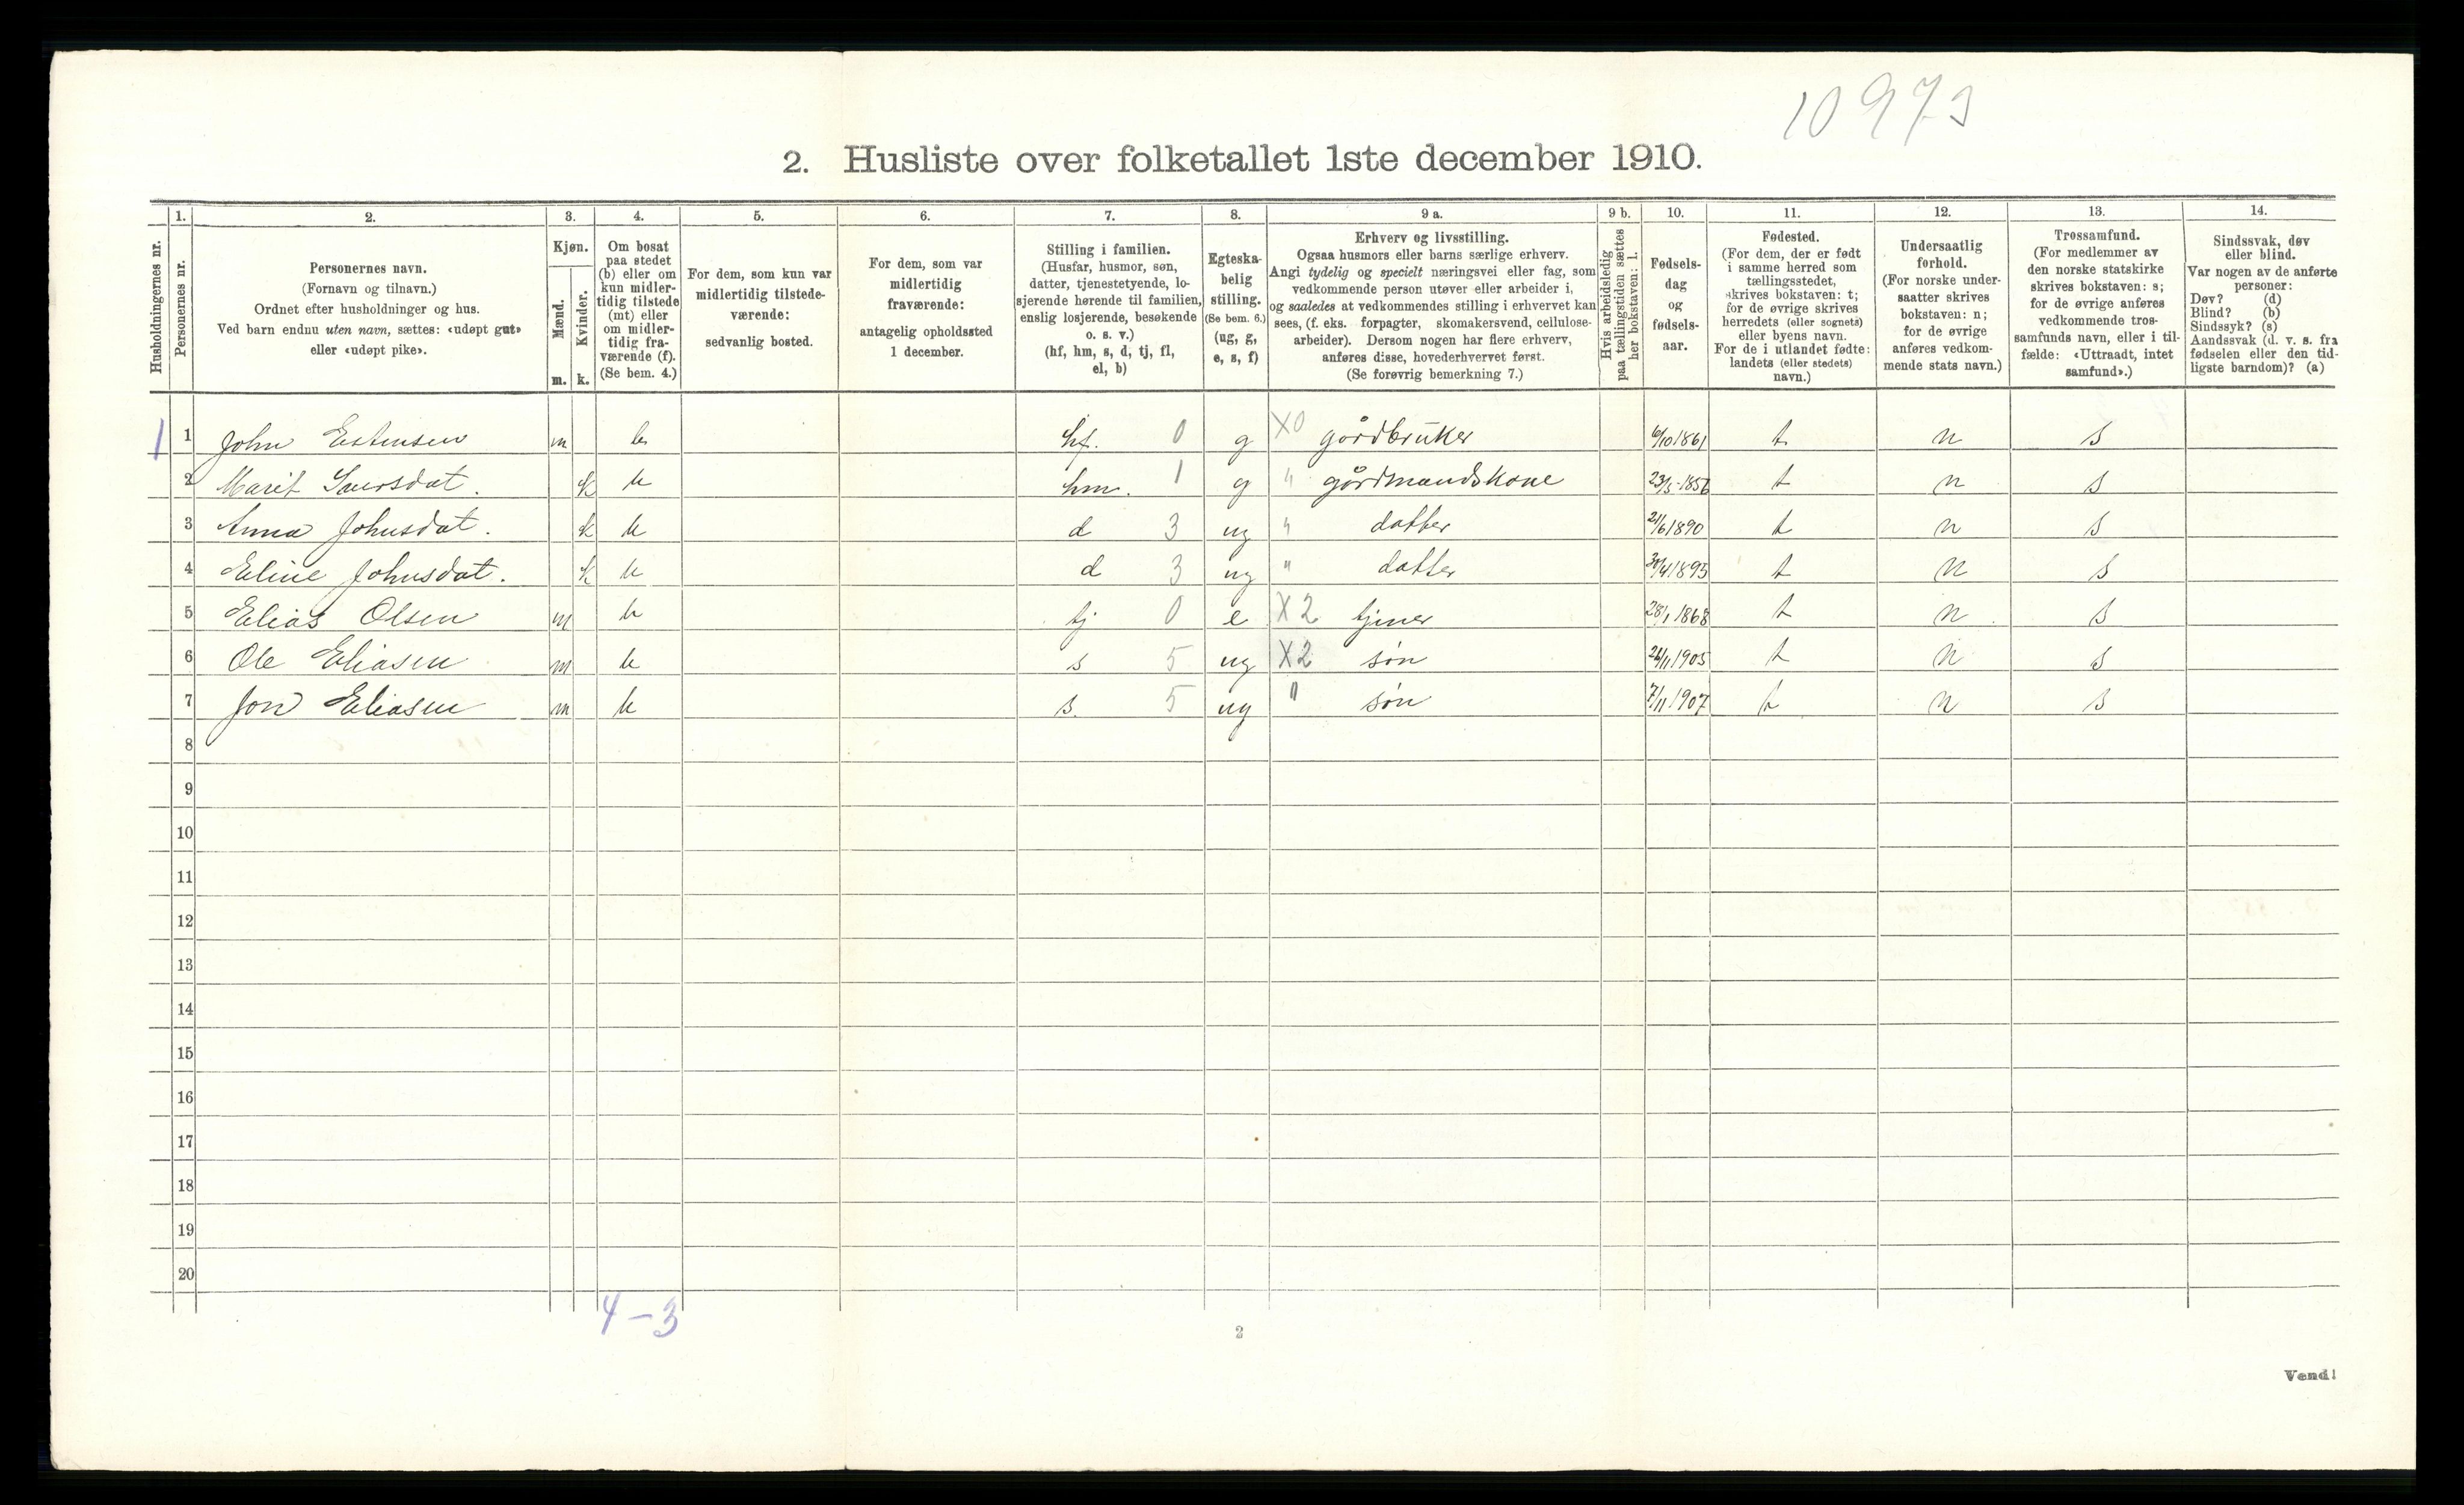 10973
2. Husliste over folketallet 1ste december 1910.
Husholdningernes nr.
1. Personernes nr.
2. Personernes navn. (Fornavn og tilnavn.) Ordnet efter husholdninger og hus. Ved barn endnu uten navn, sættes: «udøpt gut» eller «udøpt pike».
3. Kjøn. Mænd. m. Kvinder. k.
4. Om bosat paa stedet (b) eller om kun midler-tidig tilstede (mt) eller om midler-tidig fra-værende (f). (Se bem. 4.)
5. For dem, som kun var midlertidig tilstede-værende: sedvanlig bosted.
6. For dem, som var midlertidig fraværende: antagelig opholdssted 1 december.
7. Stilling i familien. (Husfar, husmor, søn, datter, tjenestetyende, lo-sjerende hørende til familien, enslig losjerende, besøkende o. s. v.) (hf, hm, s, d, tj, fl, el, b)
8. Egteska-belig stilling. (Se bem. 6.) (ug, g, e, s, f)
9 a. Erhverv og livsstilling. Ogsaa husmors eller barns særlige erhverv. Angi tydelig og specielt næringsvei eller fag, som vedkommende person utøver eller arbeider i, og saaledes at vedkommendes stilling i erhvervet kan sees, (f. eks. forpagter, skomakersvend, cellulose-arbeider). Dersom nogen har flere erhverv, anføres disse, hovederhvervet først. (Se forøvrig bemerkning 7.)
9 b. Hvis arbeidsledig paa tællingstiden sættes her bokstaven: l.
10. Fødsels-dag og fødsels-aar.
11. Fødested. (For dem, der er født i samme herred som tællingsstedet, skrives bokstaven: t; for de øvrige skrives herredets (eller sognets) eller byens navn. For de i utlandet fødte: landets (eller stedets) navn.)
12. Undersaatlig forhold. (For norske under-saatter skrives bokstaven: n; for de øvrige anføres vedkom-mende stats navn.)
13. Trossamfund. (For medlemmer av den norske statskirke skrives bokstaven: s; for de øvrige anføres vedkommende tros-samfunds navn, eller i til-fælde: «Uttraadt, intet samfund».)
14. Sindssvak, døv eller blind. Var nogen av de anførte personer: Døv? (d) Blind? (b) Sindssyk? (s) Aandssvak (d. v. s. fra fødselen eller den tid-ligste barndom)? (a)
1 1 John Estensen m b hf. 0 g X0 gårdbruker 6/10 1861 t n s
2 Marit Siversdat. k b hm. 1 g " gårdmandskone 23/5-1856 t n s
3 Anna Johnsdat. k b d 3 ug " datter 21/6 1890 t n s
4 Eline Johnsdat. k b d 3 ug " datter 30/4 1895 t n s
5 Elias Olsen m b tj 0 e X2 tjener 28/1 1868 t n s
6 Ole Eliasen m b s 5 ug X2 søn 26/11 1905 t n s
7 Jon Eliasen m b s. 5 ug " søn 7/11 1907 t n s
8
9
10
11
12
13
14
15
16
17
18
19
20
4-3
2
Vend!